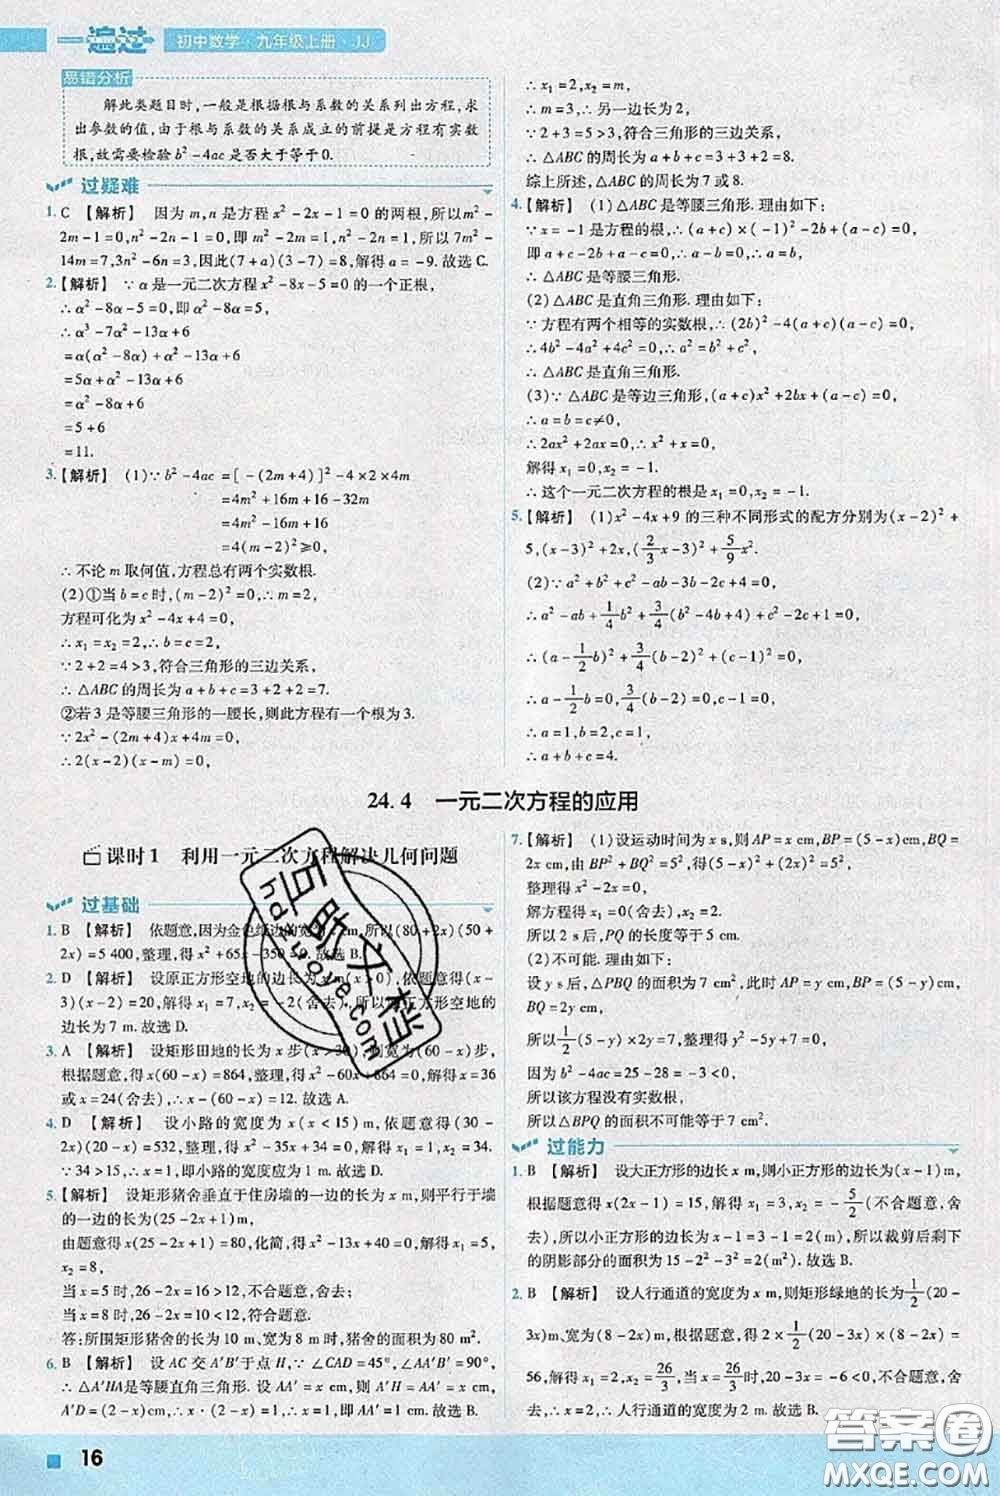 一遍过 初中数学·九年级上册·JJ
易错分析
解此类题目时,一般是根据根与系数的关系列出方程,求
出参数的值,由于根与系数的关系成立的前提是方程有实数
根,故需要检验 b²-4ac 是否大于等于0.
过疑难
1. C 【解析】 因为 m,n 是方程 x²-2x-1=0 的两根,所以 m²-
2m-1=0,n²-2n-1=0,即 m²-2m=1,n²-2n=1,所以7m²-
14m=7,3n²-6n=3,因此(7+a)(3-7)=8,解得 a=-9.故选 C.
2.【解析】 ∵α是一元二次方程 x²-8x-5=0 的一个正根,
∴α²-8α-5=0,即α²-8α=5,
∴α³-7α²-13α+6
=α(α²-8α)+α²-13α+6
=5α+α²-13α+6
=α²-8α+6
=5+6
=11.
3.【解析】 (1)∵b²-4ac=[-(2m+4)]²-4×2×4m
=4m²+16m+16-32m
=4m²-16m+16
=4(m-2)²≥0,
∴不论 m 取何值,方程总有两个实数根.
(2)①当 b=c 时,(m-2)²=0,∴m=2,
方程可化为 x²-4x+4=0,
∴x₁=x₂=2,∴b=c=2,
∵2+2=4>3,符合三角形的三边关系,
∴△ABC 的周长为 a+b+c=3+2+2=7.
②若3是等腰三角形的一腰长,则此方程有一个根为3.
∵2x²-(2m+4)x+4m=0,
∴2(x-2)(x-m)=0,
∴x₁=2,x₂=m,
∴m=3,∴另一边长为2,
∵2+3=5>3,符合三角形的三边关系,
∴△ABC 的周长为 a+b+c=3+3+2=8.
综上所述,△ABC 的周长为7或8.
4.【解析】 (1)△ABC 是等腰三角形.理由如下:
∵x=-1是方程的根,∴(a+c)×(-1)²-2b+(a-c)=0,
即 a+c-2b+a-c=0,∴a-b=0,∴a=b,
∴△ABC 是等腰三角形.
(2)△ABC 是直角三角形.理由如下:
∵方程有两个相等的实数根,∴(2b)²-4(a+c)(a-c)=0,
∴4b²-4a²+4c²=0,∴a²=b²+c²,
∴△ABC 是直角三角形.
(3)∵△ABC 是等边三角形,(a+c)x²+2bx+(a-c)=0,
∴a=b=c≠0,
∴2ax²+2ax=0,∴x²+x=0,
解得 x₁=0,x₂=-1.
∴这个一元二次方程的根是 x₁=0,x₂=-1.
5.【解析】 (1)x²-4x+9 的三种不同形式的配方分别为(x-2)²+
5,(x-3)²+2x,(2/3x-3)²+5/9x².
(2)∵a²+b²+c²-ab-3b-2c+4=0,
∴a²-ab+1/4b²+3/4(b²-4b+4)+c²-2c+1=0,
∴(a-1/2b)²+3/4(b-2)²+(c-1)²=0,
∴a-1/2b=0,3/4(b-2)=0,c-1=0,
∴a=1,b=2,c=1,
∴a+b+c=4.
24.4 一元二次方程的应用
课时1 利用一元二次方程解决几何问题
过基础
1. B 【解析】 依题意,因为金色纸边的宽为x cm,所以(80+2x)(50+
2x)=5 400,整理,得 x²+65x-350=0.故选 B.
2. D 【解析】 设原正方形空地的边长为 x m(x>0),依题意得(x-
3)(x-2)=20,解得 x₁=7,x₂=-2(舍去),即原正方形空地的
边长为7 m.故选 D.
3. A 【解析】 设矩形田地的长为 x 步(x>30),则宽为(60-x)步,
根据题意,得 x(60-x)=864,整理,得 x²-60x+864=0,解得 x=36
或 x=24(舍去),∴x-(60-x)=12.故选 A.
4. D 【解析】 设小路的宽度为 x m(x<15),根据题意得(30-
2x)(20-x)=532,整理,得 x²-35x+34=0.解得 x₁=1,x₂=34.
∵34>15,∴x=1,即小路的宽度应为1 m.故选 D.
5.【解析】 设矩形猪舍垂直于住房墙的一边的长为 x m,则平行于墙
的一边的长为(25-2x+1)m,
由题意得 x(25-2x+1)=80,化简,得 x²-13x+40=0,解得 x₁=5,
x₂=8,
当 x=5 时,26-2x=16>12,不合题意,舍去;
当 x=8 时,26-2x=10<12,符合题意.
答:所围矩形猪舍的长为10 m、宽为8 m 时,猪舍的面积为80 m².
6. B 【解析】 设 AC 交 A'B'于点 H,∵∠CAD=45°,∠AA'B'=90°,
∴△A'HA是等腰直角三角形.设 AA'=x cm,则 A'H=AA'=x cm,
A'D=(2-x)cm,∴x·(2-x)=1,解得 x=1,∴AA'=1 cm.故选 B.
7.【解析】 (1)设运动时间为 x s,则 AP=x cm,BP=(5-x)cm,BQ=
2x cm,由 BP²+BQ²=5²,得(5-x)²+(2x)²=5²,
整理得 x²-2x=0,
解方程得 x₁=0(舍去),x₂=2,
所以2 s后,PQ 的长度等于5 cm.
(2)不可能.理由如下:
设 y s 后,△PBQ 的面积为7 cm²,此时 AP=y cm,BP=(5-y)cm,
BQ=2y cm,
所以1/2(5-y)×2y=7,整理得 y²-5y+7=0,
因为 b²-4ac=25-28=-3<0,
所以该方程没有实数根,
所以△BPQ 的面积不可能等于7 cm².
过能力
1. B 【解析】 设大正方形的边长 x m,则小正方形的边长为(x-1)m,
根据题意得 x(2x-1)=15,解得 x₁=3,x₂=-5/2(不合题意,舍
去),所以小正方形的边长为 x-1=3-1=2(m),所以裁剪后剩下
的阴影部分的面积为15-2²-2²=7(m²).故选 B.
2. B 【解析】 设人行通道的宽度为 x m,则矩形绿地的长为1/2(20-
3x)m、宽为(8-2x)m,根据题意,得 2×1/2(20-3x)(8-2x)=
56,解得 x₁=2,x₂=26/3,当 x=26/3 时,20-3x=-6<0,不符合题意,
舍去,∴x=2,∴人行通道的宽度为2 m.故选 B.
16
百时文档
hdzuoye.com
答案圈
MXQE.COM